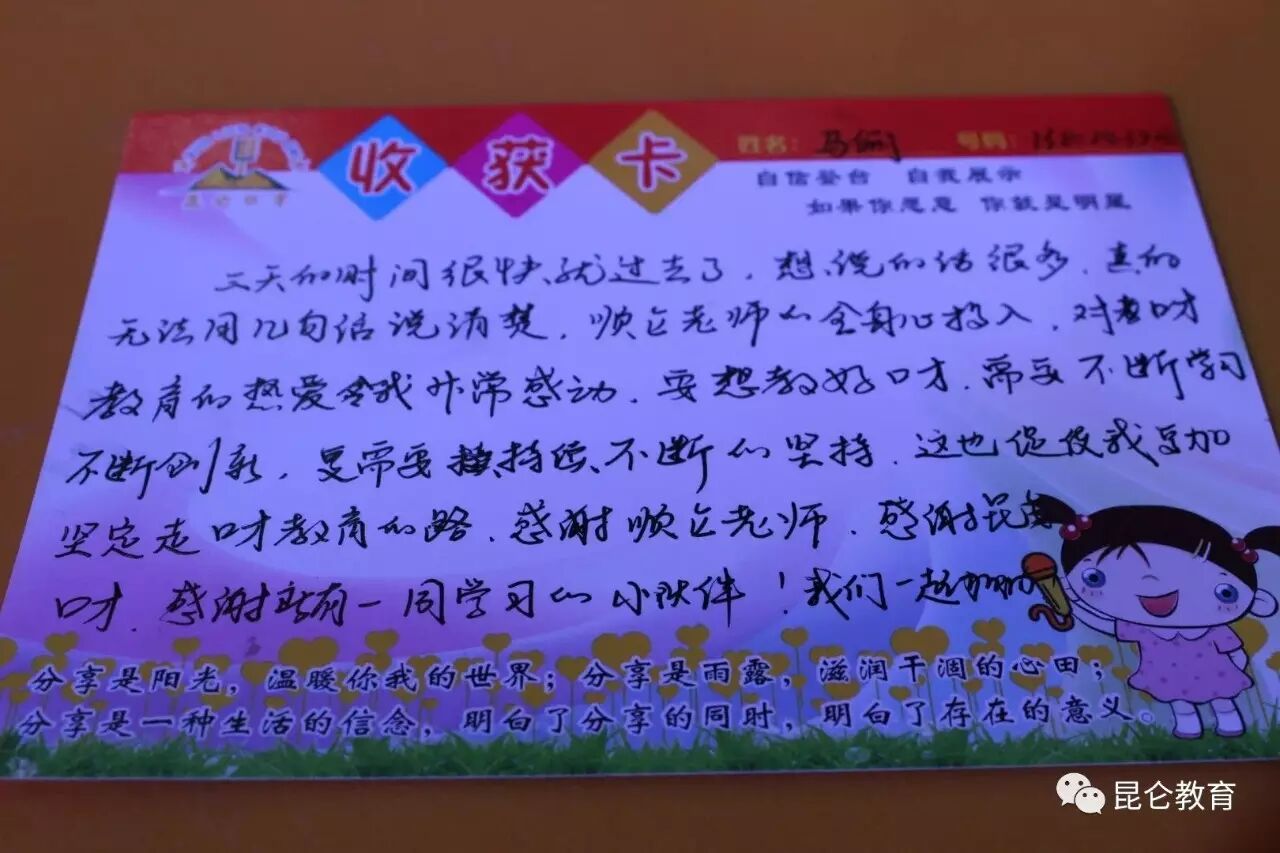 收获卡
姓名：马俐
号码：
昆仑教育
自信登台 自我展示
如果你愿意 你就是明星
三天的时间很快就过去了，想说的话很多，真的
无法用几句话说清楚，顺仑老师的全身心投入，对口才
教育的热爱令我非常感动，要想教好口才，需要不断学习
不断创新，更需要持续、不断的坚持，这也促使我更加
坚定走口才教育的路，感谢顺仑老师，感谢昆仑
口才，感谢所有一同学习的小伙伴！我们一起加油
分享是阳光，温暖你我的世界；分享是雨露，滋润干涸的心田；
分享是一种生活的信念，明白了分享的同时，明白了存在的意义。
昆仑教育